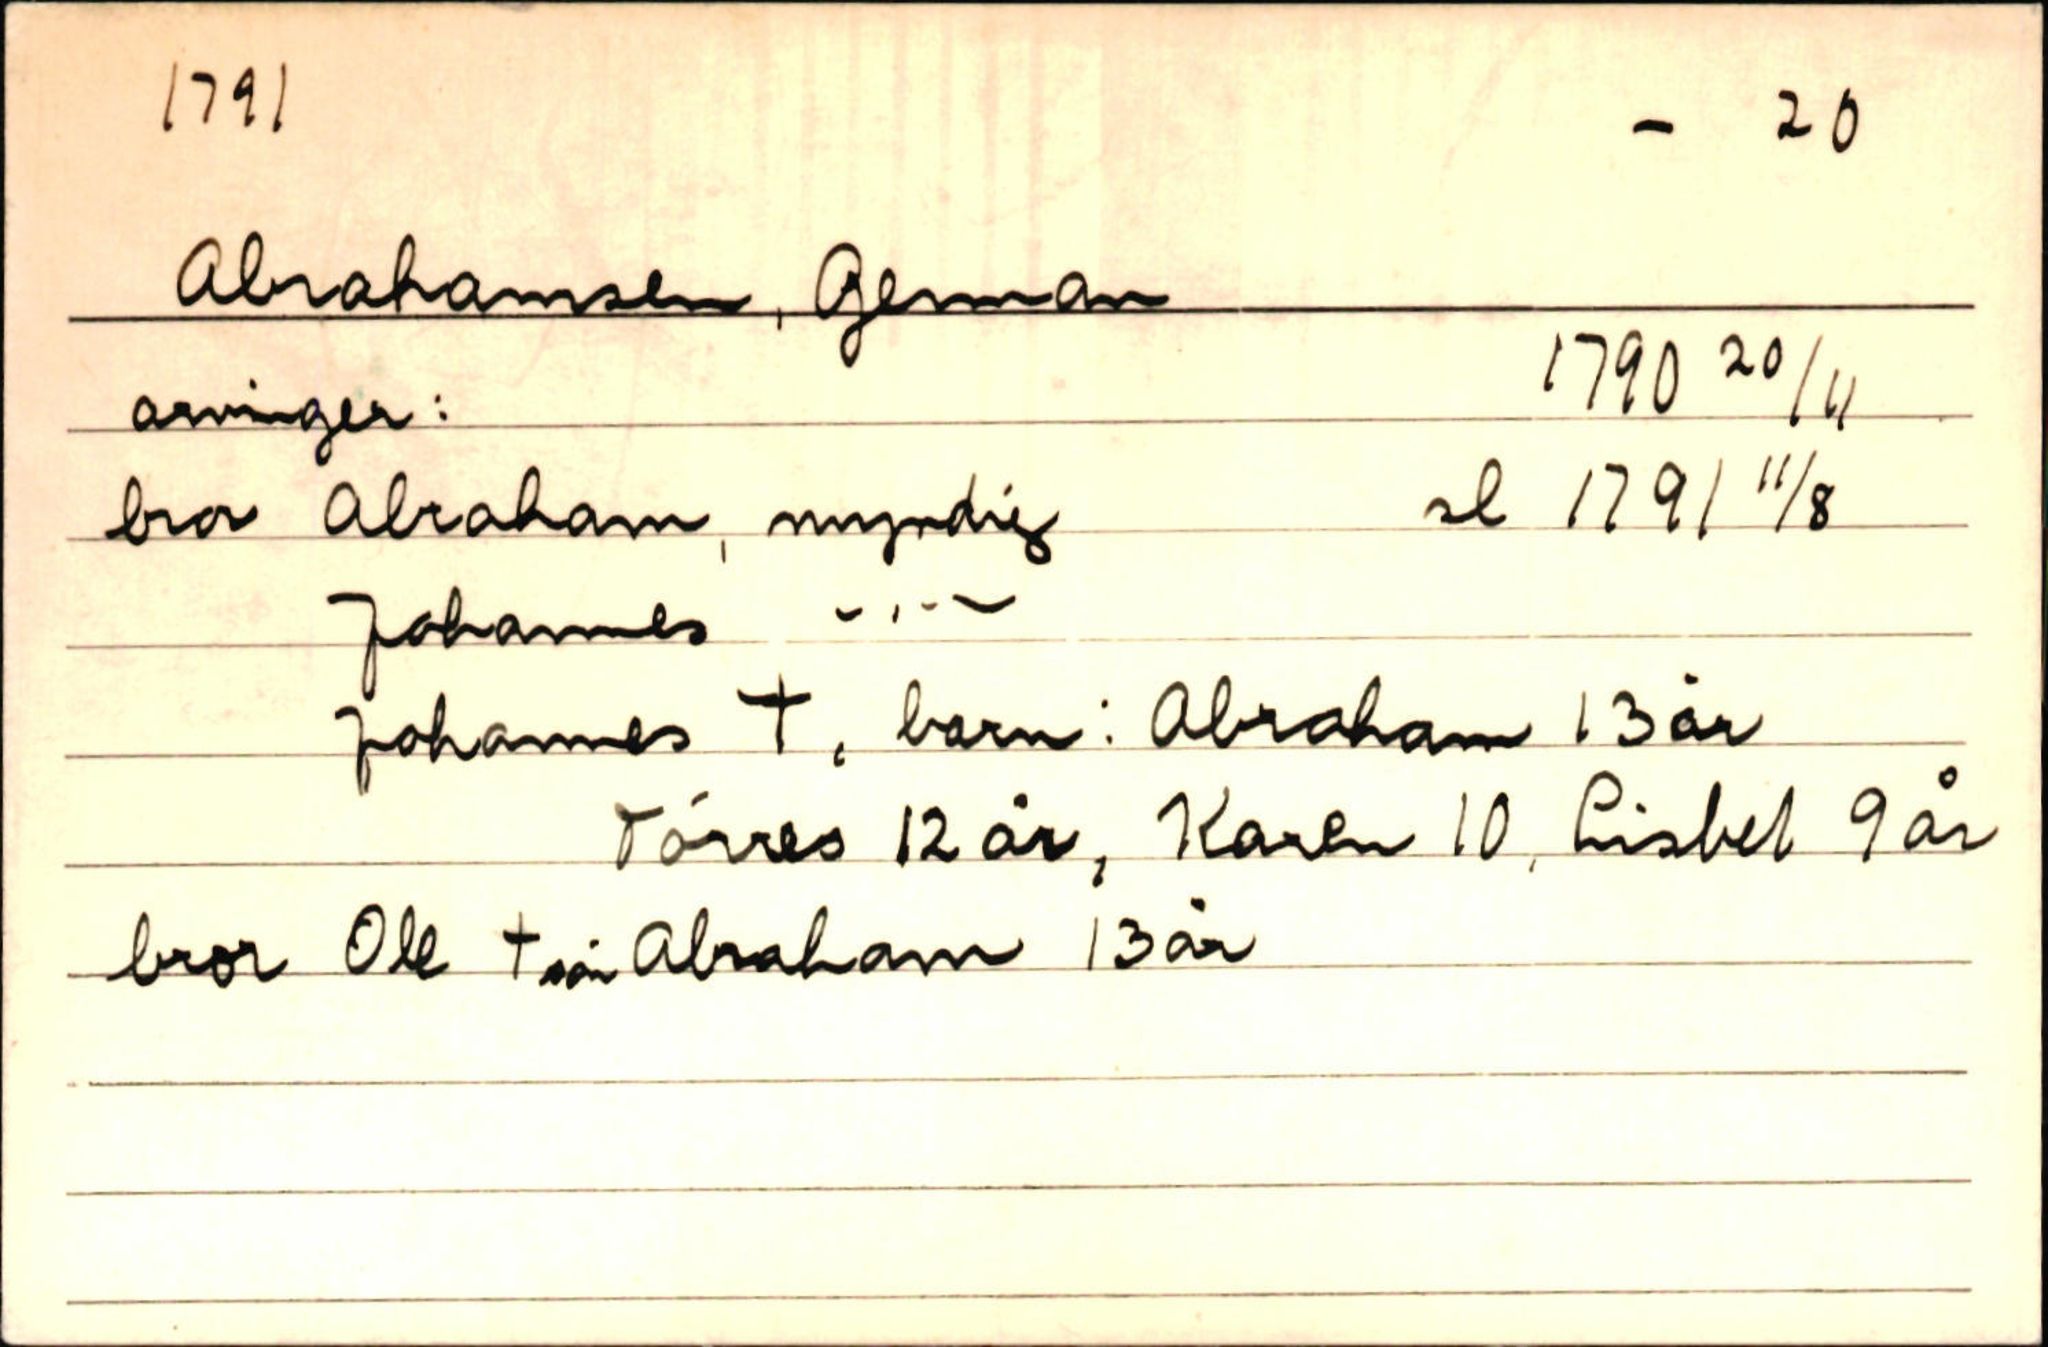 1791 - 20
Abrahamsen, German
arvinger: 1790 20/11
bror Abraham, myndig sl 1791 11/8
Johannes -"-
Johannes †, barn: Abraham 13 år
Tórres 12 år, Karen 10, Lisbet 9 år
bror Ole † søn Abraham 13 år